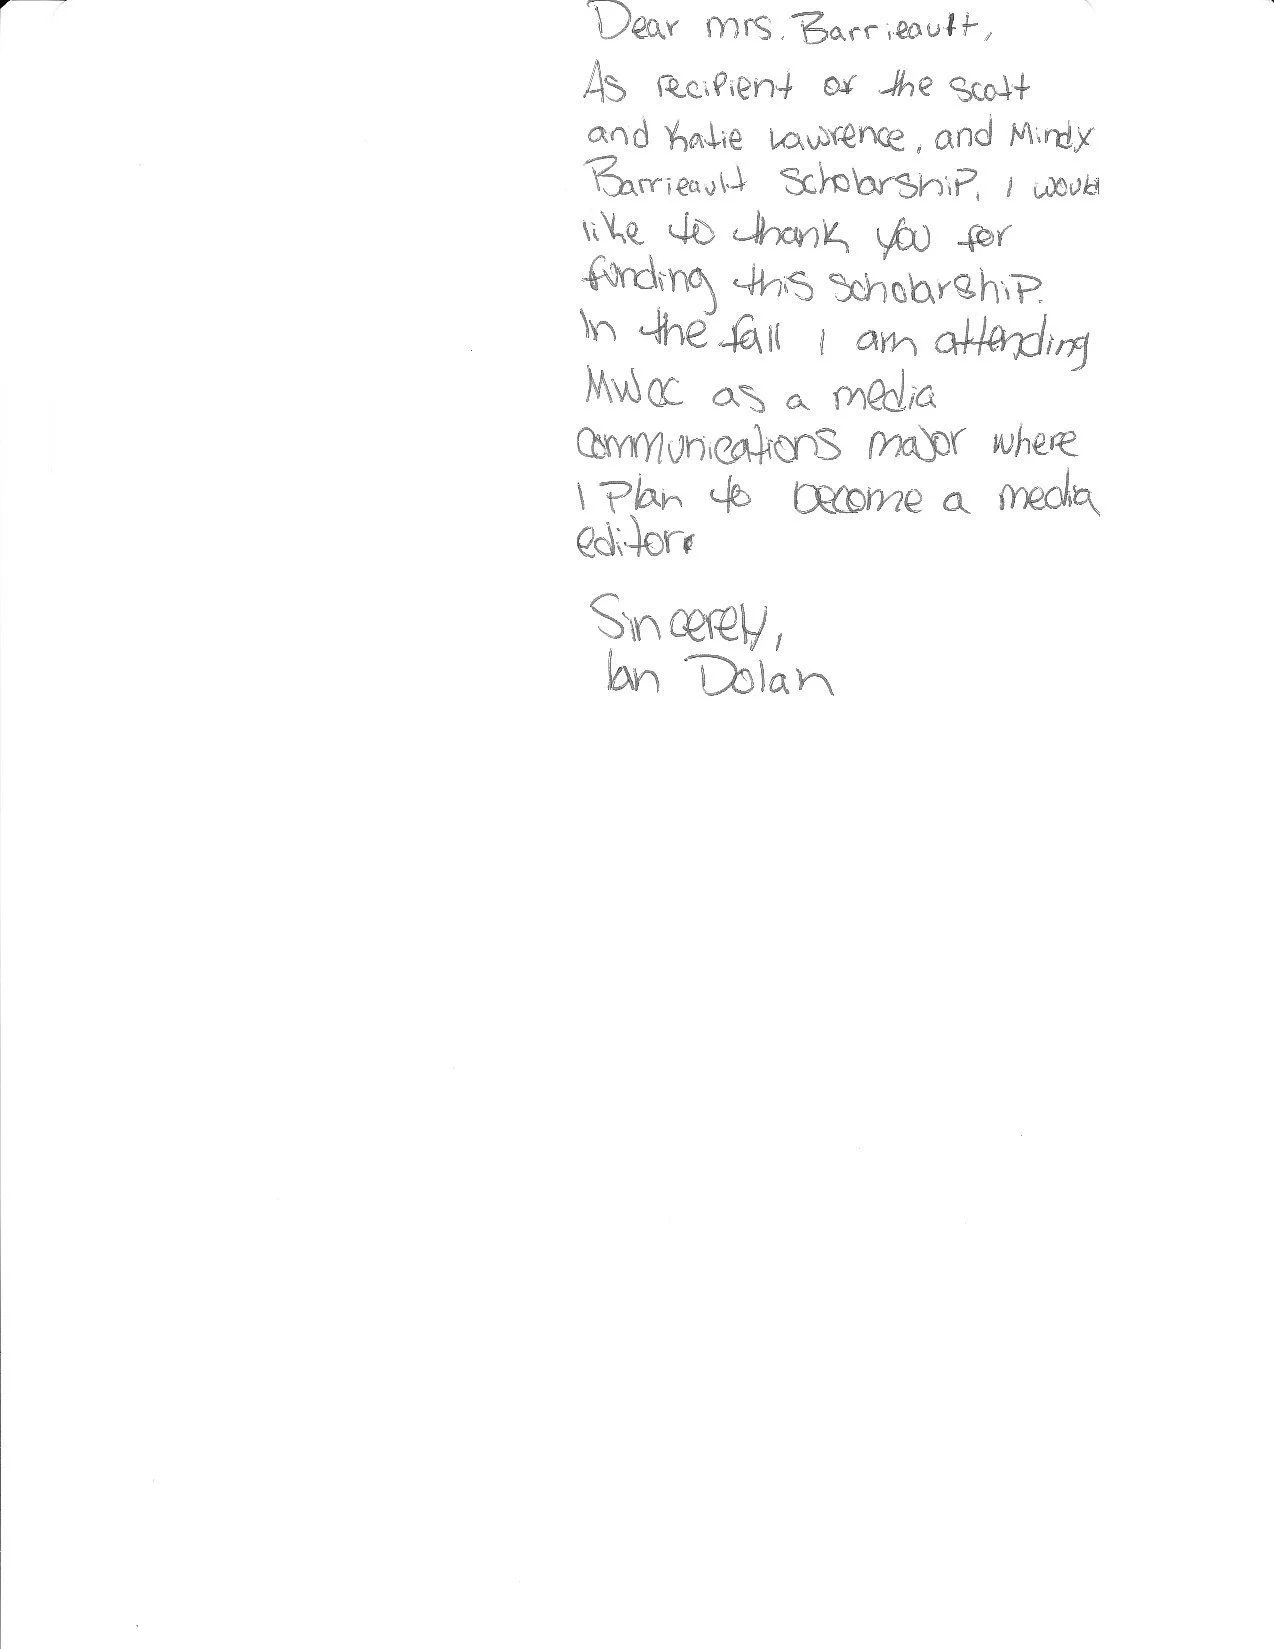 Dear mrs. Barrieault,
As recipient of the Scott
and Katie Lawrence, and Mindy
Barrieault Scholarship, I would
like to thank you for
funding this scholarship.
In the fall I am attending
MWCC as a media
communications major where
I plan to become a media
editor.
Sincerely,
Ian Dolan